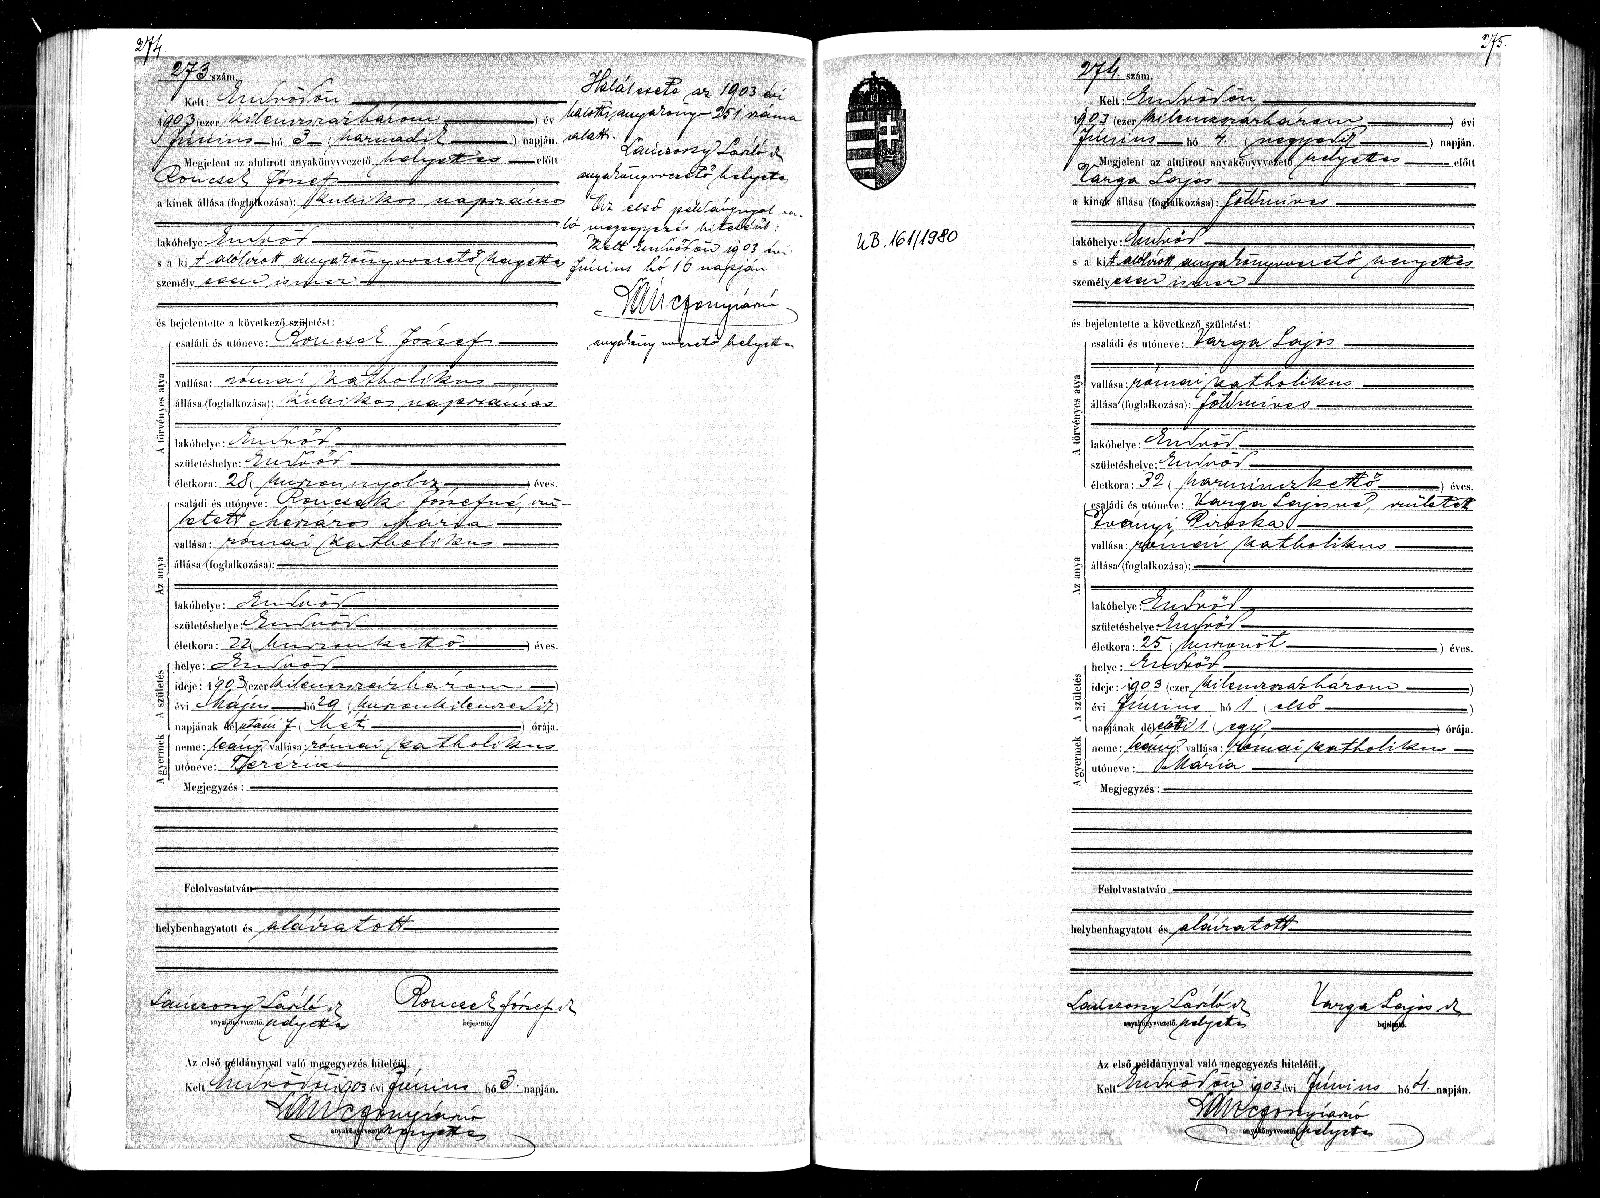 274.
273 szám.
Kelt: Endrődön
1903 (ezer kilenczszázhárom) év
Június hó 3 (harmadik) napján.
Megjelent az alulirott anyakönyvvezető helyettes előtt
Roncsek József
a kinek állása (foglalkozása): kubikos napszámos
lakóhelye: Endrőd
s a kit alólirott anyakönyvvezető helyettes
személyesen ismer
és bejelentette a következő születést:
A törvényes atya
családi és utóneve: Roncsek József
vallása: római katholikus
állása (foglalkozása): kubikos napszámos
lakóhelye: Endrőd
születéshelye: Endrőd
életkora: 28 (huszonnyolcz) éves.
Az anya
családi és utóneve: Roncsek Józsefné, szü-
letett Mészáros Mária
vallása: római katholikus
állása (foglalkozása):
lakóhelye: Endrőd
születéshelye: Endrőd
életkora: 22 (huszonkettő) éves.
A születés
helye: Endrőd
ideje: 1903 (ezer kilenczszázhárom)
évi Május hó 29 (huszonkilenczedik)
napjának délutáni 7 (hét) órája.
A gyermek
neme: leány, vallása: római katholikus
utóneve: Terézia
Megjegyzés:
Felolvastatván
helybenhagyatott és aláíratott
Lanczony László sk Roncsek József sk
anyakönyvvezető helyettes bejelentő.
Az első példánynyal való megegyezés hiteléül.
Kelt Endrődön 1903 évi Június hó 3. napján.
helyettes
anyakönyvvezető
Halálesete az 1903 évi
halotti anyakönyv 251 száma
alatt.
Lanczony László sk
anyakönyvvezető helyettes
Az első példánynyal va-
ló megegyezés hiteléül:
Kelt Endrődön 1903 évi
Június hó 16 napján
anyakönyvvezető helyettes
275.
274. szám.
Kelt: Endrődön
1903 (ezer kilenczszázhárom) évi
Június hó 4. (negyedik) napján.
Megjelent az alulirott anyakönyvvezető helyettes előtt
Varga Lajos
a kinek állása (foglalkozása): földmíves
lakóhelye: Endrőd
s a kit alólirott anyakönyvvezető helyettes
személyesen ismer
és bejelentette a következő születést:
A törvényes atya
családi és utóneve: Varga Lajos
vallása: római katholikus
állása (foglalkozása): földmíves
lakóhelye: Endrőd
születéshelye: Endrőd
életkora: 32 (harminczkettő) éves.
Az anya
családi és utóneve: Varga Lajosné, született
Iványi Piroska
vallása: római katholikus
állása (foglalkozása):
lakóhelye: Endrőd
születéshelye: Endrőd
életkora: 25 (huszonöt) éves.
A születés
helye: Endrőd
ideje: 1903 (ezer kilenczszázhárom)
évi Június hó 1 (első)
napjának délelőtti 1 (egy) órája.
A gyermek
neme: leány, vallása: római katholikus
utóneve: Mária
Megjegyzés:
Felolvastatván
helybenhagyatott és aláíratott
Lanczony László sk Varga Lajos sk
anyakönyvvezető helyettes bejelentő.
Az első példánynyal való megegyezés hiteléül.
Kelt Endrődön 1903 évi Június hó 4. napján.
anyakönyvvezető helyettes
UB. 161/1980